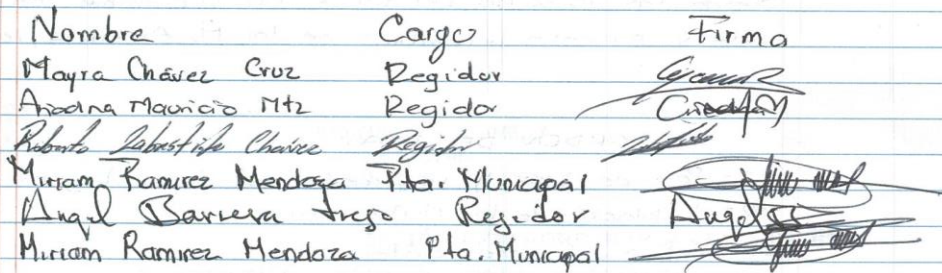 Nombre Cargo Firma
Mayra Chávez Cruz Regidor
Mauricio Mtz Regidor
Roberto Chávez Regidor
Miriam Ramirez Mendoza Pta. Municipal
Angel Barrera Trejo Regidor Angel
Miriam Ramirez Mendoza Pta. Municipal